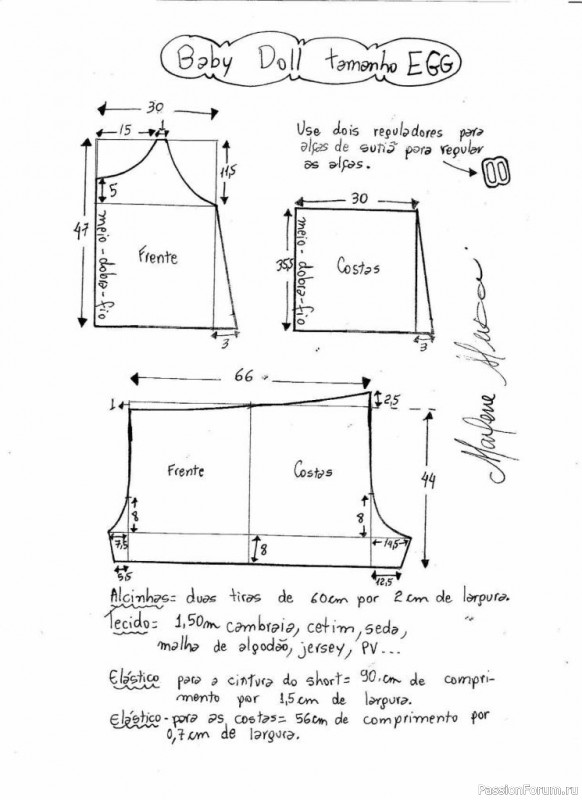 Baby Doll tamanho EGG
30
15
1
Use dois reguladores para
alças de sutiã para regular
as alças.
11,5
5
47
meio-dobra-fio
Frente
3
30
35,5
meio-dobra-fio
Costas
3
Marlene Mukai
66
1
2,5
Frente
Costas
44
8
8
7,5
8
14,5
5,5
12,5
Alcinhas= duas tiras de 60cm por 2cm de largura.
Tecido= 1,50m cambraia, cetim, seda,
malha de algodão, jersey, PV...
Elástico para a cintura do short= 90cm de compri-
mento por 1,5cm de largura.
Elástico-para as costas= 56cm de comprimento por
0,7cm de largura.
PassionForum.ru